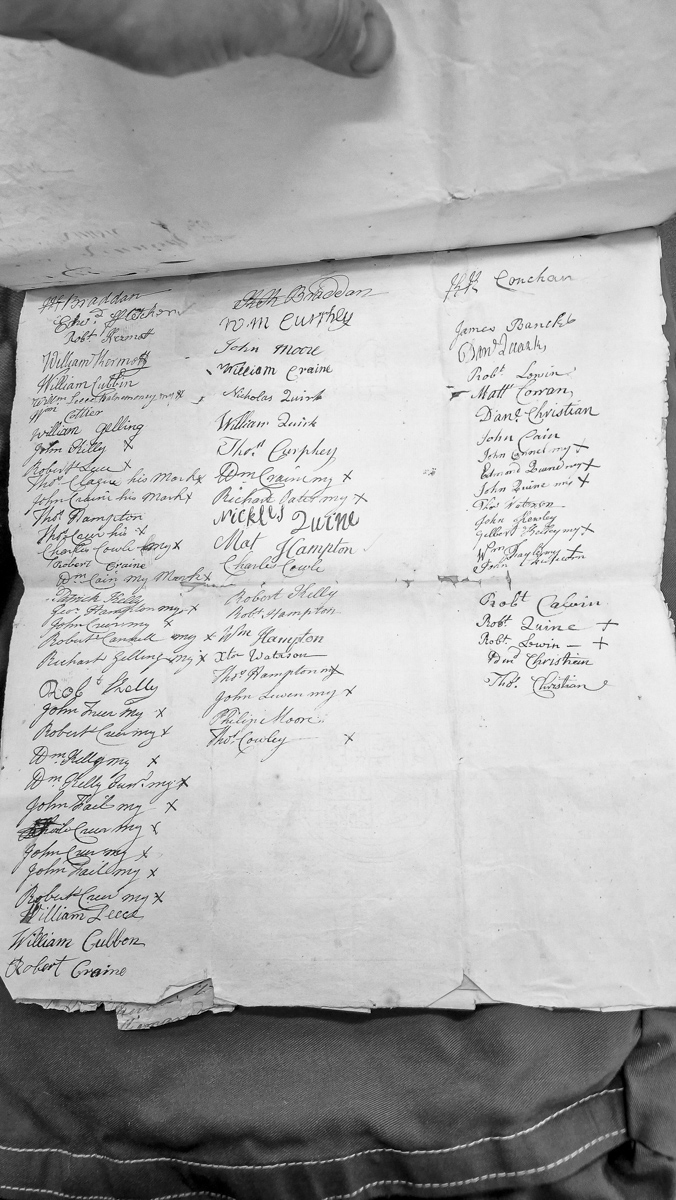 Braddan
Edwd
Robt Kermott
William Thermott
William Cubbin
my x
Wm Collier
William Gelling
John Kelly x
Robert x
Thos Clague his Mark x
John his Mark x
Thos Hampton
Thos Caur his x
Charles Cowle my x
Robert Craine
Wm Cain my Mark x
Patrick Kelly
Geo: Hampton my x
John my x
Robert Cannell my x
Richard Gelling my x
Robt Kelly
John my x
Robert Creer my x
Wm Kelly my x
Wm Kelly Junr my x
John Fail my x
Creer my x
John Creer my x
John Faill my x
Robert Creer my x
William Leece
William Cubbon
Robert Craine
Braddan
Wm Curphey
John Moore
William Craine
Nicholas Quirk
William Quirk
Thos Curphey
Wm Craine my x
Richard my x
Nickles Quine
Mat Hampton
Charles Cowle
Robert Kelly
Robt Hampton
Wm Hampton
Xto Watrson
Thos Hampton my x
John my x
Philip Moore
Thos Cowley x
Conchan
James Bancks
Danl Quark
Robt Lowin
Matt Cowan
Danl Christian
John Cain
John Cannel my x
Edward my x
John Quine my x
Thos Watrson
John Cowley
Gilbert Kelley my x
Wm my x
John
Robt Calvin
Robt Quine x
Robt Lewin x
Christian
Thos Christian